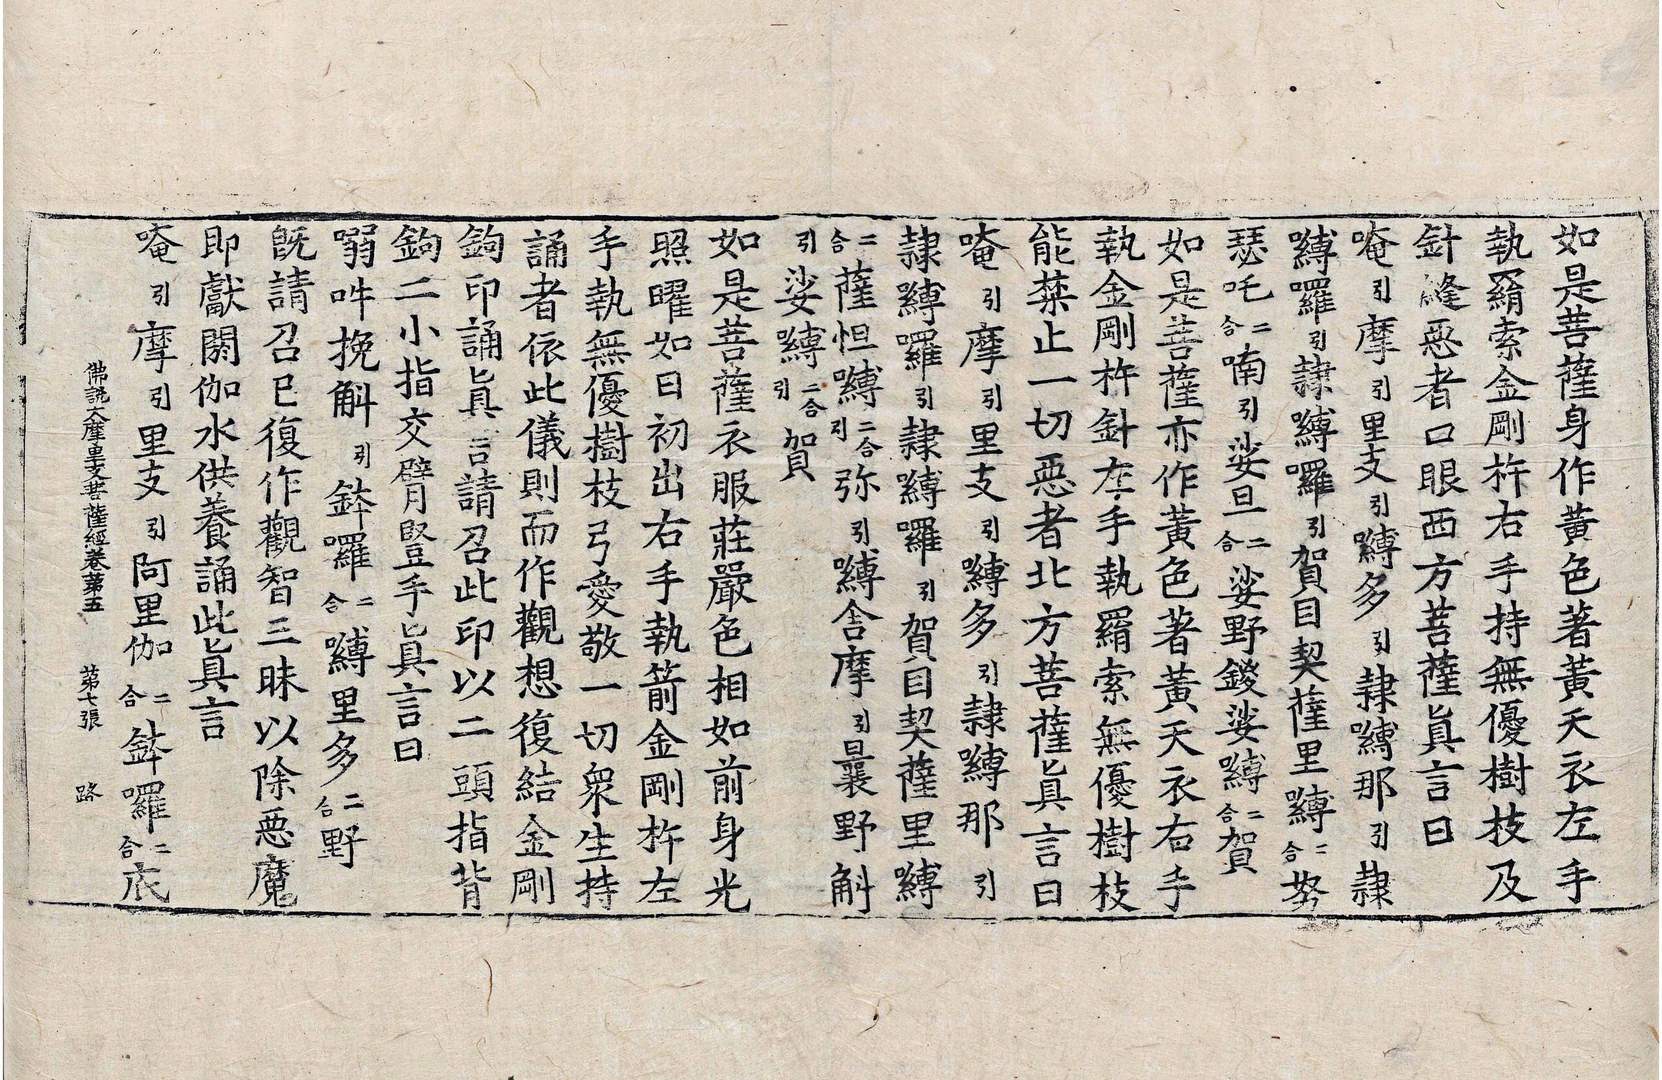 如是菩薩身作黃色著黃天衣左手
執羂索金剛杵右手持無優樹枝及
針縫惡者口眼西方菩薩眞言曰
唵引摩引里支引嚩多引隷嚩那引隷
嚩囉引隷嚩囉引賀目契薩里嚩二合努
瑟吒二合喃引娑旦二合娑野鍐娑嚩二合賀
如是菩薩亦作黃色著黃天衣右手
執金剛杵針左手執羂索無優樹枝
能禁止一切惡者北方菩薩眞言曰
唵引摩引里支引嚩多引隷嚩那引
隷嚩囉引隷嚩囉引賀目契薩里嚩
二合薩怛嚩二合引弥引嚩舍摩引曩野斛
引娑嚩二合引賀
如是菩薩衣服莊嚴色相如前身光
照曜如日初出右手執箭金剛杵左
手執無優樹枝弓愛敬一切衆生持
誦者依此儀則而作觀想復結金剛
鉤印誦眞言請召此印以二頭指背
鉤二小指交臂竪手眞言曰
𠺁吽挽斛引鉢囉二合嚩里多二合野
旣請召已復作觀智三昧以除惡魔
即獻閼伽水供養誦此眞言
唵引摩引里支引阿里伽二合鉢囉二合底
佛說大摩里支菩薩經卷第五 第七張 路